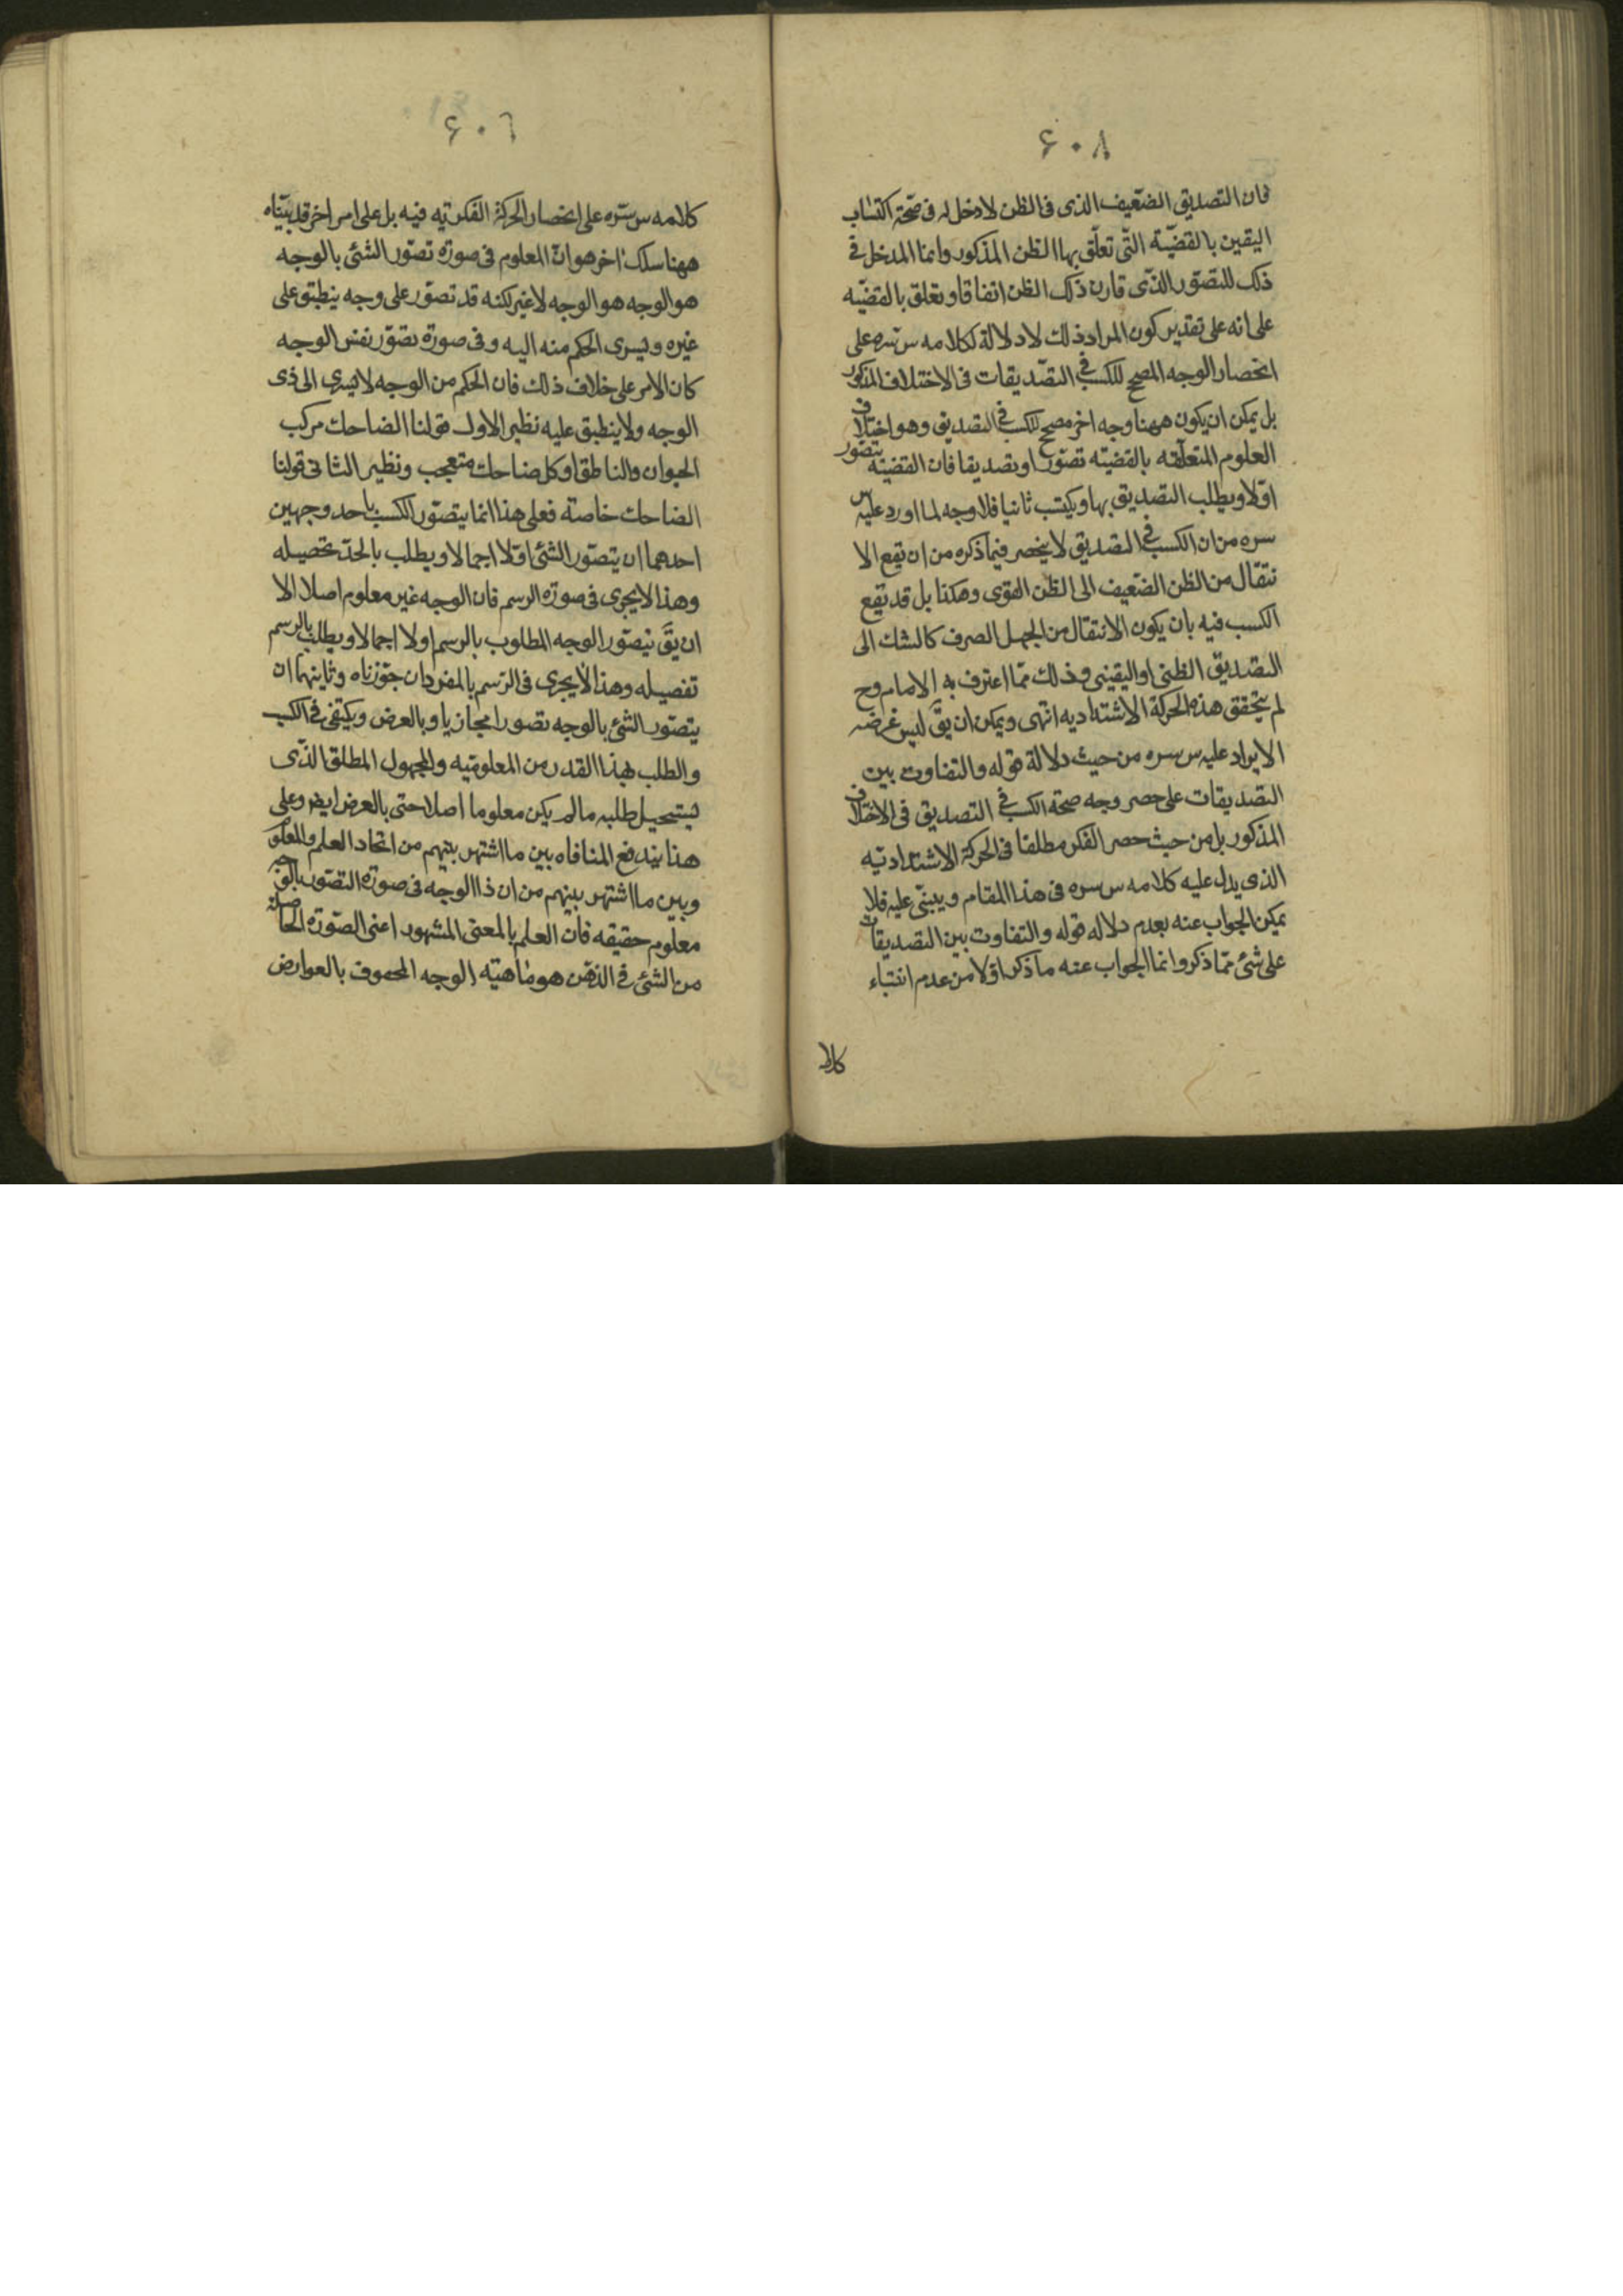 ۶۰۸
فان التصديق الضعيف الذى فى الظن لا دخل له فى صحّة اكتساب
اليقين بالقضيّة التّى تعلّق بها الظن المذكور وانما المدخل فى
ذلك للتصوّر الذّى قارن ذلك الظن اتفاقا وتعلق بالقضيّه
على انه على تقدير كون المراد ذلك لا دلالة لكلامه س سّره على
انحصار الوجه المصحح للكسب فى التصّديقات فى الاختلاف المذكور
بل يمكن ان يكون ههنا وجه اخر مصحح للكسب فى التصديق وهو اختلاف
العلوم المتعلّقه بالقضيّه تصوّرا وتصديقا فان القضيّه يتصّور
اوّلا ويطلب التصديق بها ويكتسب ثانيا فلا وجه لما اورد عليه س
سره من ان الكسب فى التصديق لا ينحصر فيما ذكره من ان يقع الا
نتقال من الظن الضعيف الى الظن القوى وهكذا بل قد يقع
الكسب فيه بان يكون الانتقال من الجهل الصرف كالشك الى
التصديق الظنى او اليقينى وذلك ممّا اعترف به الامام وح
لم يتحقق هذه الحركة الاشتداديه انتهى ويمكن ان يقّ ليس غرضه
الايراد عليه س سره من حيث دلالة قوله والتفاوت بين
التصديقات على حصر وجه صحّة الكسب فى التصديق فى الاختلاف
المذكور بل من حيث حصر الفكر مطلقا فى الحركة الاشتداديّه
الذى يدل عليه كلامه س سره فى هذا المقام ويبتنّى عليه فلا
يمكن الجواب عنه بعدم دلاله قوله والتفاوت بين التصديقات
على شئ ممّا ذكر وانما الجواب عنه ما ذكر اوّلا من عدم ابتناء
كلا
۶۰٦
كلامه س سّره على انحصار الحركة الفكريّه فيه بل على امر اخر قد بيّناه
ههنا سلك اخر هو انّ المعلوم فى صورة تصوّر الشئ بالوجه
هو الوجه هو الوجه لا غير لكنه قد تصوّر على وجه ينطبق على
غيره ويسرى الحكم منه اليه وفى صورة تصوّر نفس الوجه
كان الامر على خلاف ذلك فان الحكم من الوجه لا يسرى الى ذى
الوجه ولا ينطبق عليه نظير الاول قولنا الضاحك مركب
الحيوان والناطق او كل ضاحك متعجب ونظير الثانى قولنا
الضاحك خاصة فعلى هذا انما يتصوّر الكسب باحد وجهين
احدهما ان يتصوّر الشئ اوّلا اجمالا ويطلب بالحدّ تحصيله
وهذا لا يجرى فى صورة الرسم فان الوجه غير معلوم اصلا الا
ان يقّ يتصوّر الوجه المطلوب بالرسم اولا اجمالا ويطلب بالرسم
تفصيله وهذا لا يجرى فى الرّسم بالمفرد ان جوّزناه وثاينهما ان
يتصوّر الشئ بالوجه تصورا مجازيا وبالعرض ويكتفى فى الكسب
والطلب بهذا القدر من المعلوميّه والمجهول المطلق الذّى
يستحيل طلبه ما لم يكن معلوما اصلا حتى بالعرض ايضا وعلى
هذا يندفع المنافاه بين ما اشتهر بينهم من اتحاد العلم والمعلوم
وبين ما اشتهر بينهم من ان ذا الوجه فى صورة التصوّر بالوجه
معلوم حقيقه فان العلم بالمعنى المشهور اعنى الصّورة الحاصلة
من الشئ فى الذهن هو ماهيّه الوجه المحفوف بالعوارض